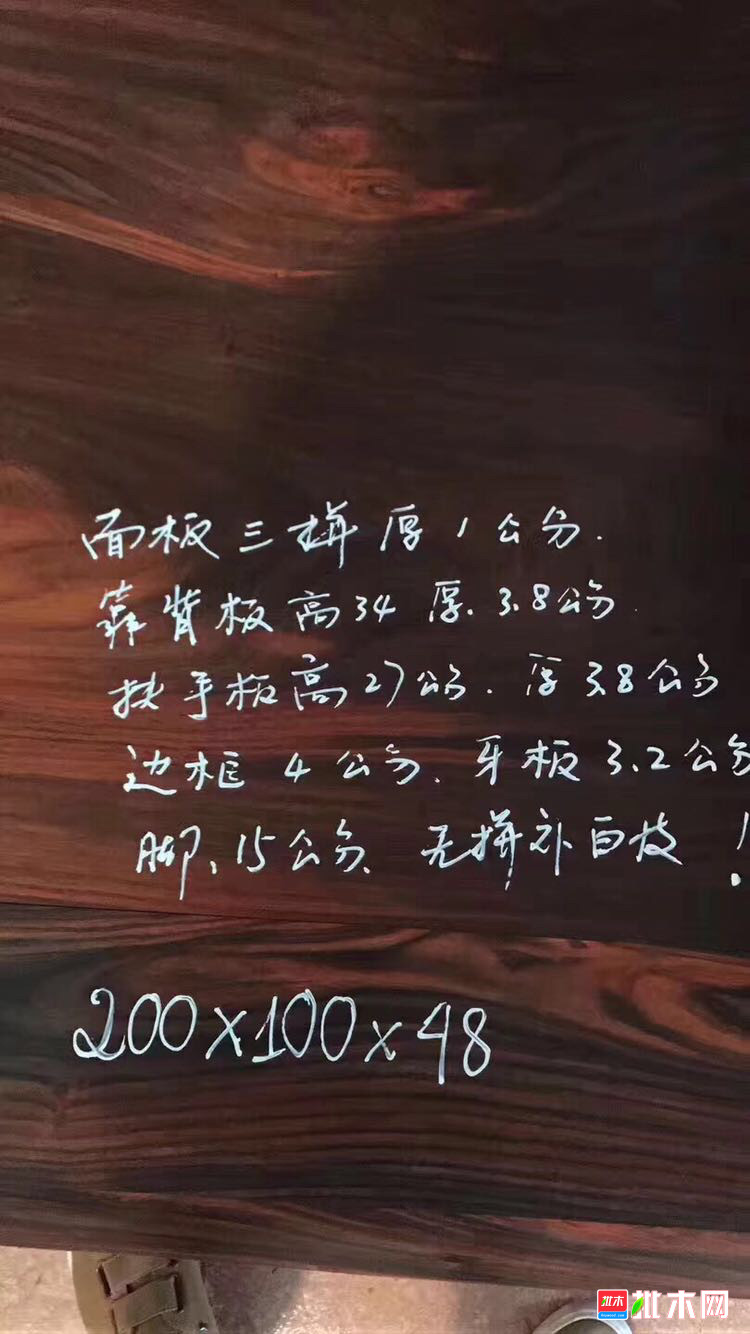 面板三拼厚1公分.
靠背板高34厚.3.8公分.
扶手板高27公分.厚3.8公分
边框4公分.牙板3.2公分
脚.15公分.无拼补白枝!
200x100x48
批木 批木网